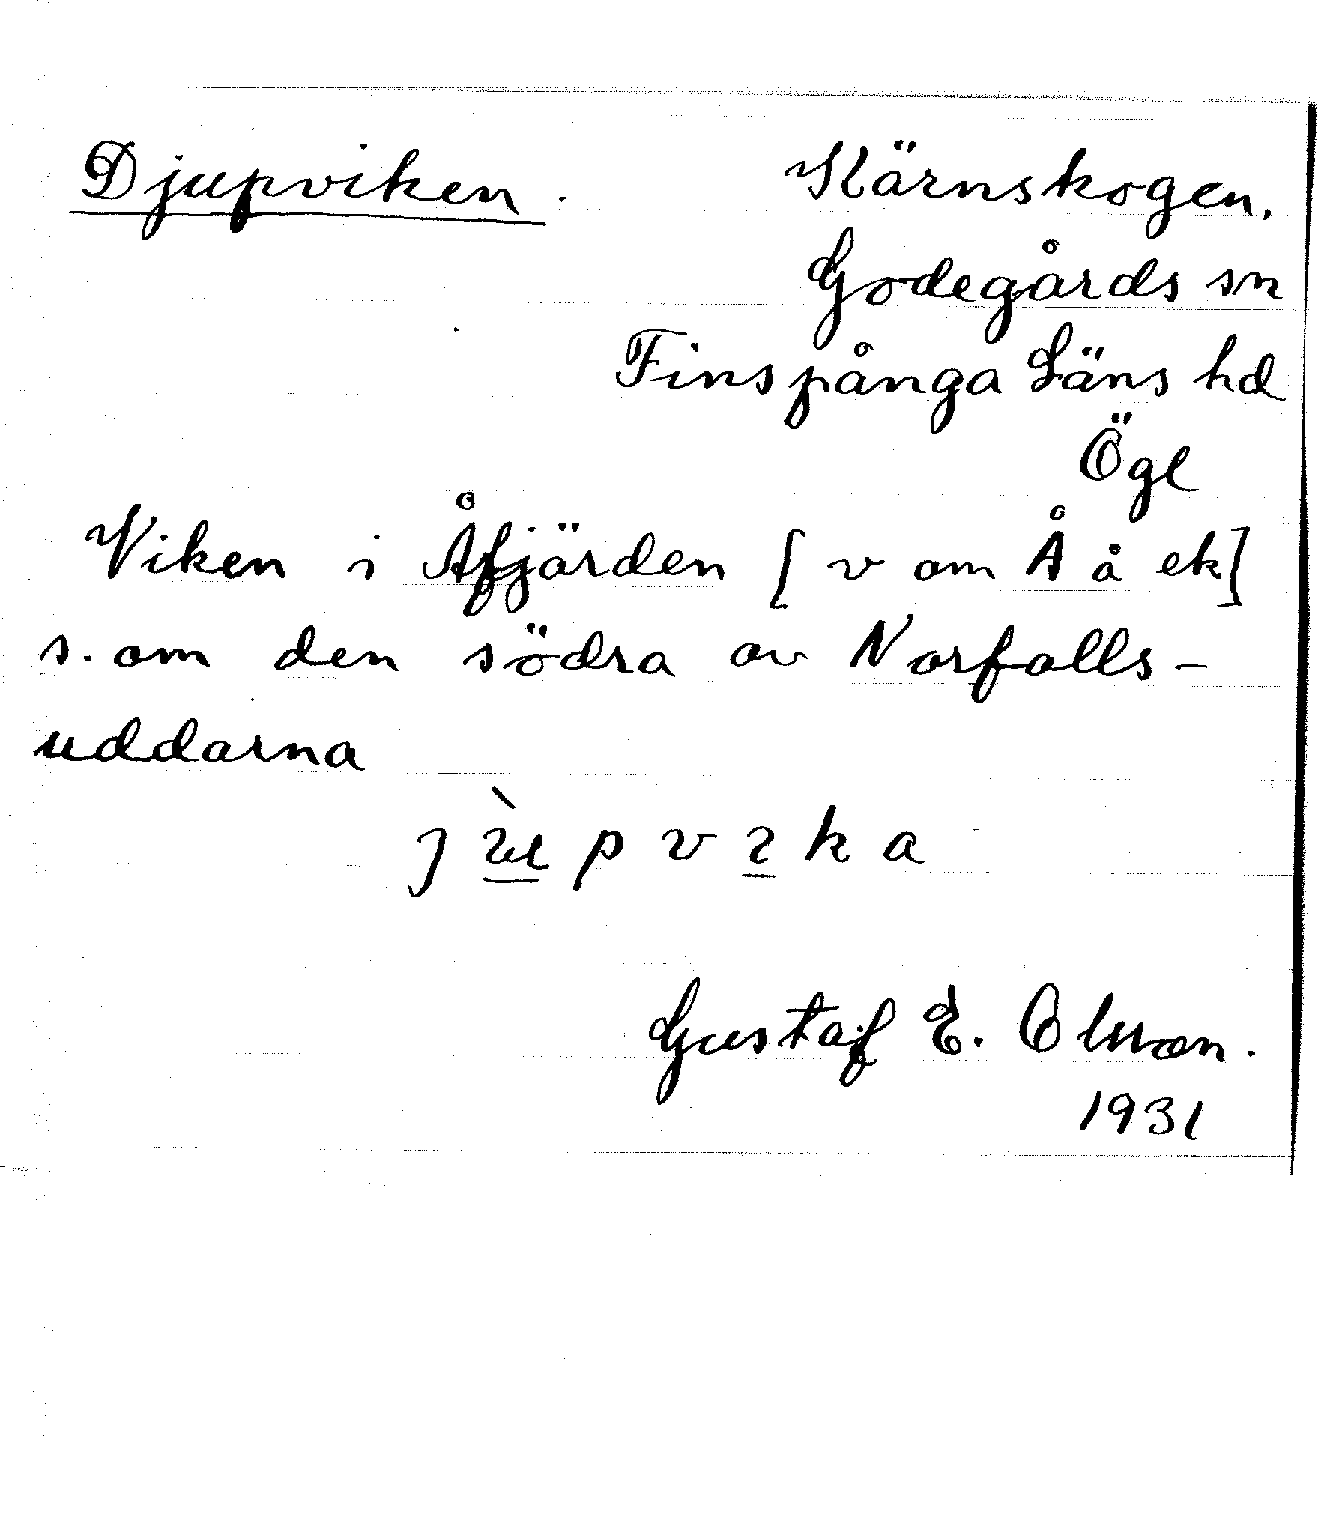 Djupviken. Kärnskogen,
Godegårds sn
Finspånga Läns hd
Ögl
Viken i Åfjärden [v om Å å ek]
s. om den södra av Norfalls-
uddarna
jùpvika
Gustaf E. Olsson.
1931